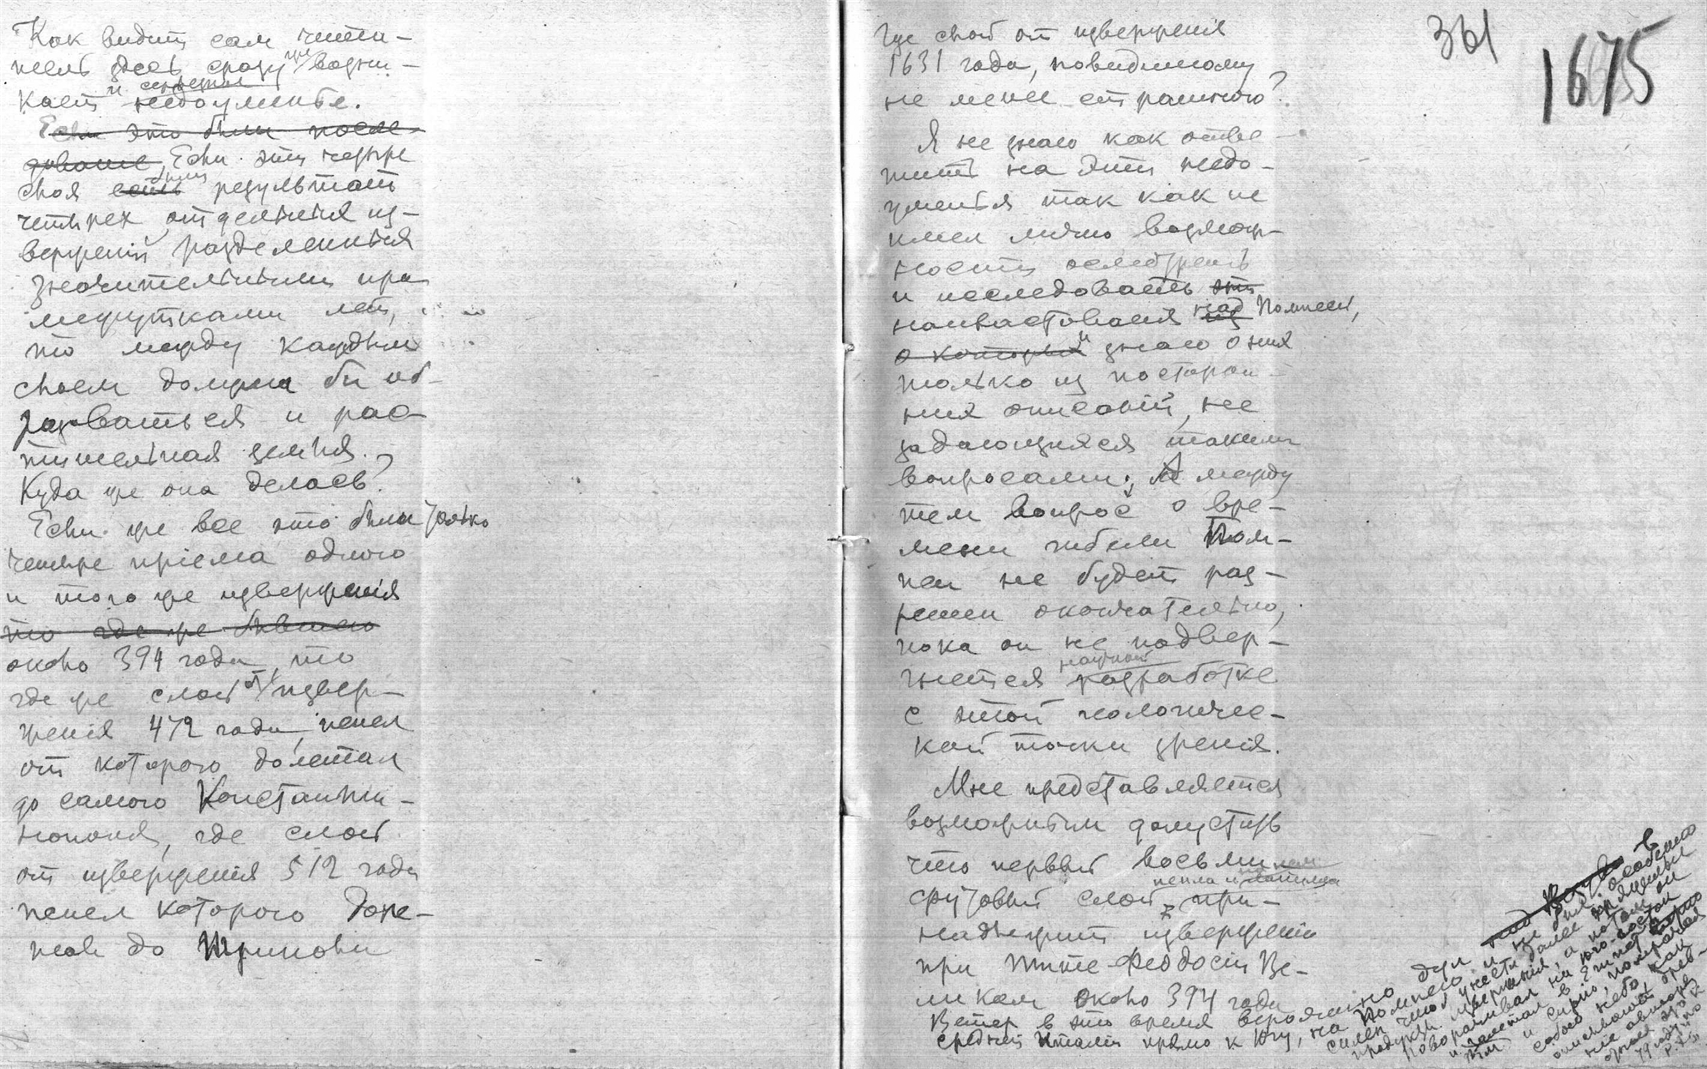 Как видит сам чита-
тель здесь сразу же возни-
кает и серьезное недоуменье.
Если это были после-
дование, Если эти четыре
слоя есть были результат
четырех отдельных из-
вержений разделенных
значительными про
межутками лет,
то между каждым
слоем должна бы об-
разоваться и рас-
тительная земля.
Куда же она делась?
Если же все это были только
четыре приема одного
и того же извержения
то где же бывшего
около 394 года, то
где же слой от извер-
жения 472 года, пепел
от которого долетал
до самого Константи-
нополя, где слой
от извержения 512 года
пепел которого доле-
тал до Триполи
361
1675
Где слой от извержения
1631 года, повидимому
не менее страшного?
Я не знаю как отве-
тить на эти недо-
уменья так как не
имел лично возмож-
ности осмотреть
и исследовать эти
напластования из над Помпеей,
о которых и знаю о них
только из посторон-
них описаний, не
задающихся такими
вопросами. А между
тем вопрос о вре-
мени гибели Пом-
пеи не будет раз-
решен окончательно,
пока он не подвер-
гнется научной разработке
с этой геологичес-
кой точки зрения.
Мне представляется
возможным допустить
что первый восьми
футовый слой пепла и при-
надлежит извержению
при Тите-Феодосии Ве-
ликом около 394 года
Ветер в это время вероятно дул
средней Италии прямо к югу, на Помпею и